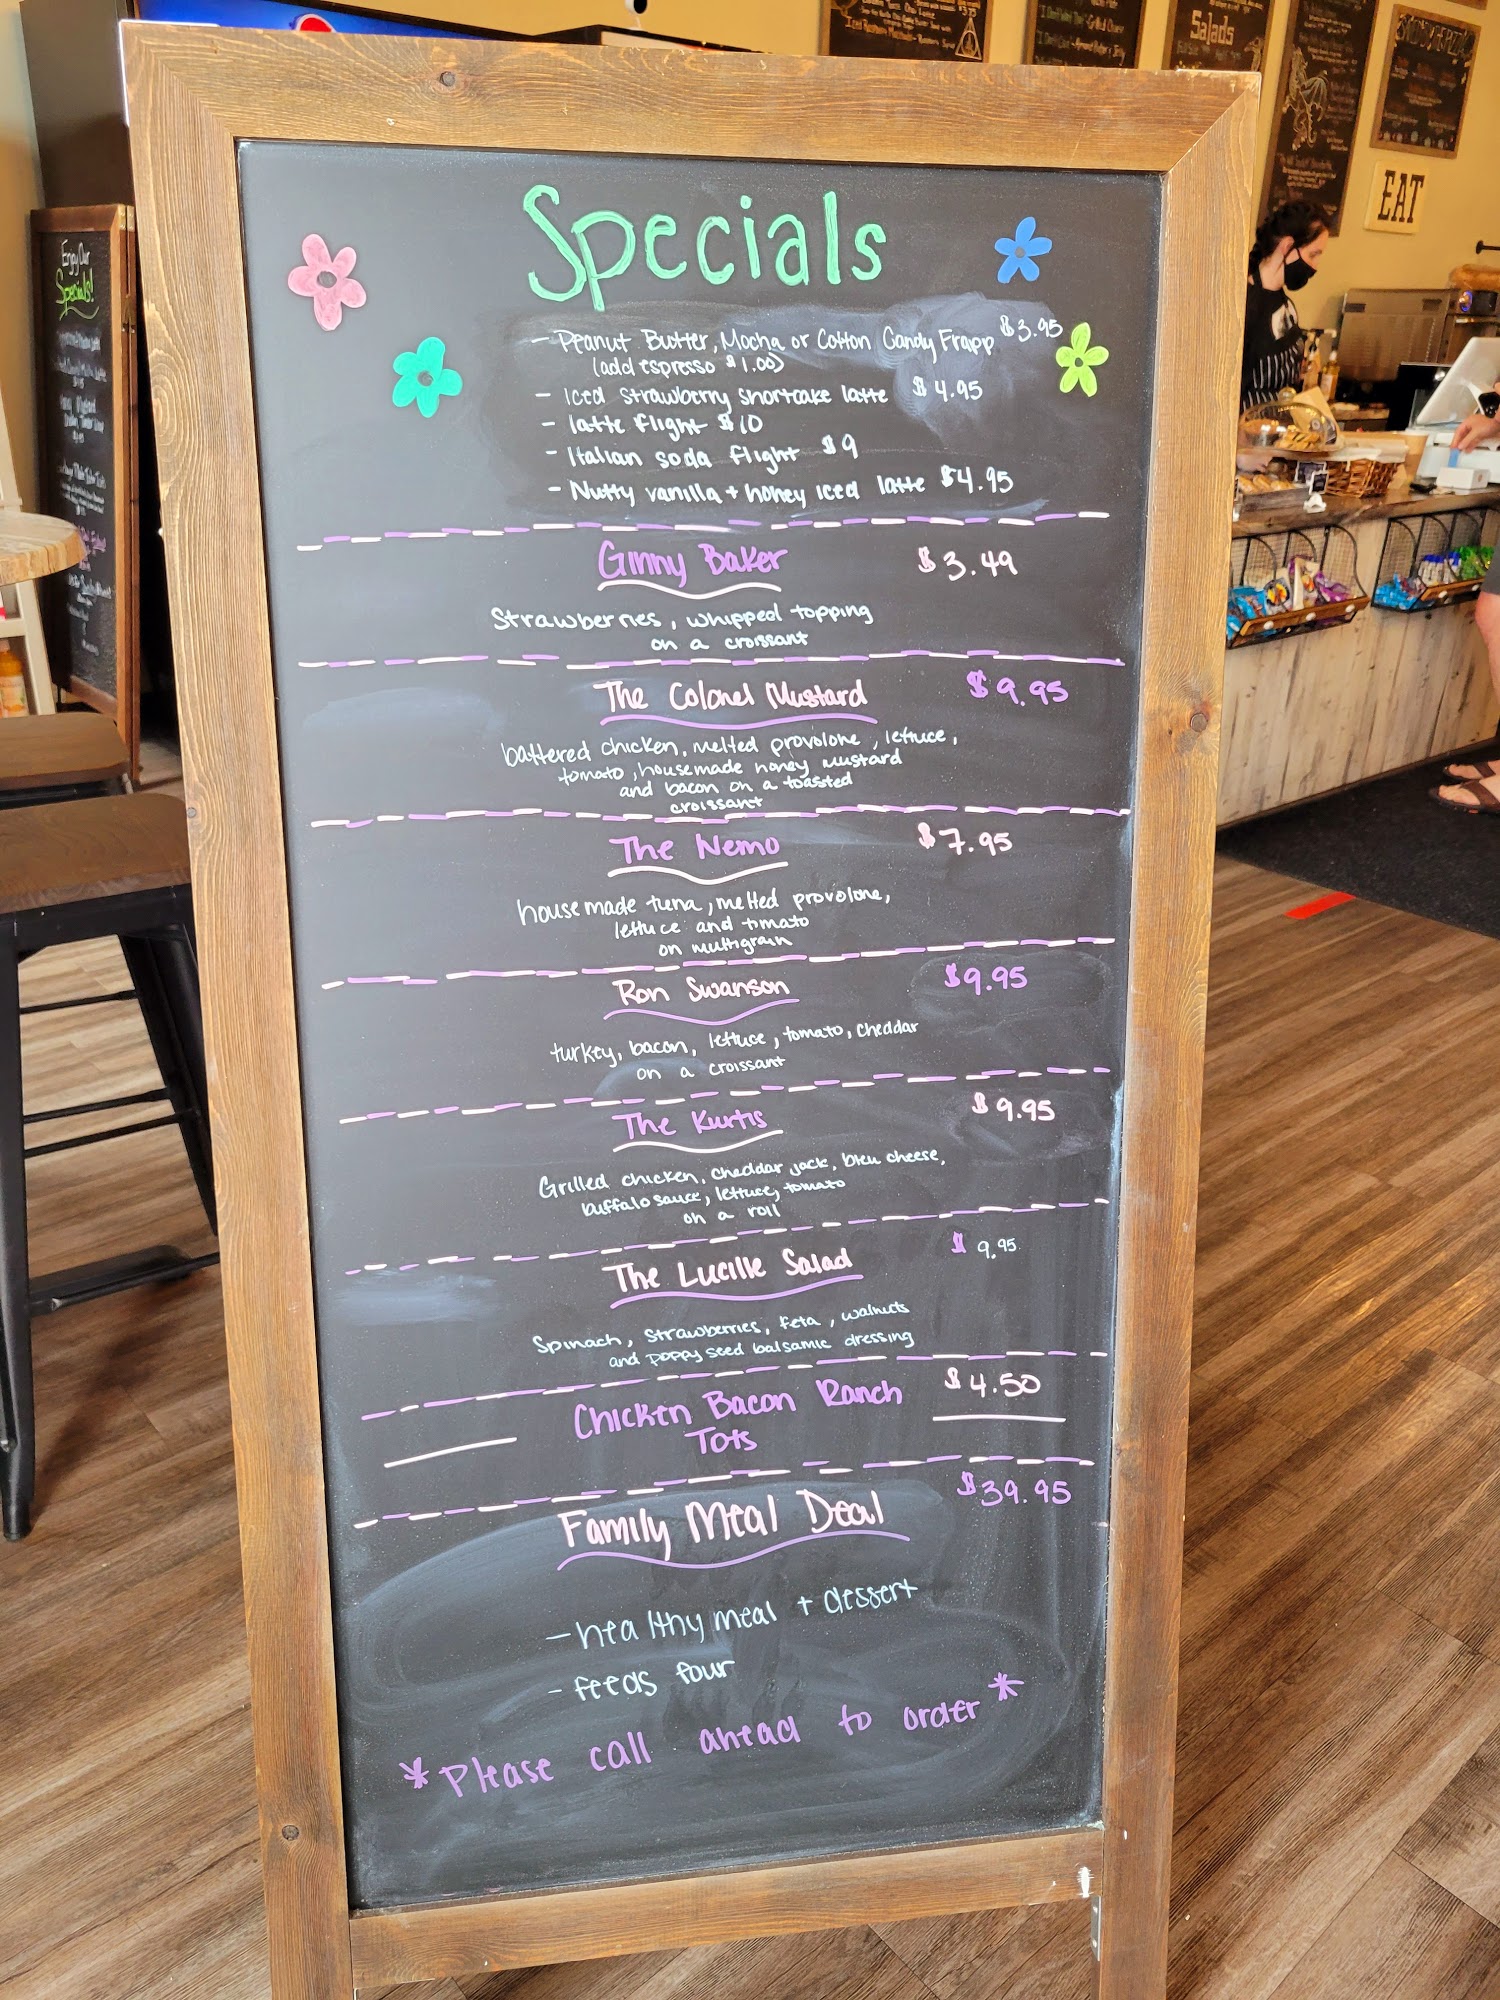 Specials
- Peanut Butter, Mocha or Cotton Candy Frapp $3.95
(add espresso $1.00)
- Iced strawberry shortcake latte $4.95
- latte flight $10
- Italian soda flight $9
- Nutty vanilla + honey iced latte $4.95
Ginny Baker $3.49
Strawberries, whipped topping
on a croissant
The Colonel Mustard $9.95
battered chicken, melted provolone, lettuce,
tomato, housemade honey mustard
and bacon on a toasted
croissant
The Nemo $7.95
housemade tuna, melted provolone,
lettuce and tomato
on multigrain
Ron Swanson $9.95
turkey, bacon, lettuce, tomato, cheddar
on a croissant
The Kurtis $9.95
Grilled chicken, cheddar jack, bleu cheese,
buffalo sauce, lettuce, tomato
on a roll
The Lucille Salad $9.95
Spinach, strawberries, feta, walnuts
and poppy seed balsamic dressing
Chicken Bacon Ranch $4.50
Tots
Family Meal Deal $39.95
- healthy meal + dessert
- feeds four
*Please call ahead to order*
Enjoy Our
Specials!
Salads
EAT